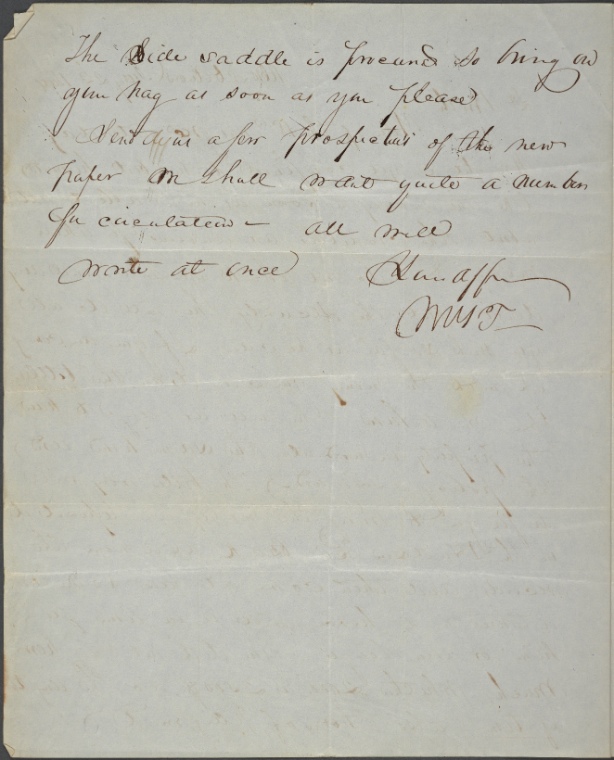 The Side saddle is procured so bring on
your nag as soon as you please
Send us a few prospectus' of the new
paper We shall want quite a number
for circulation – all well
Write at once
WHT